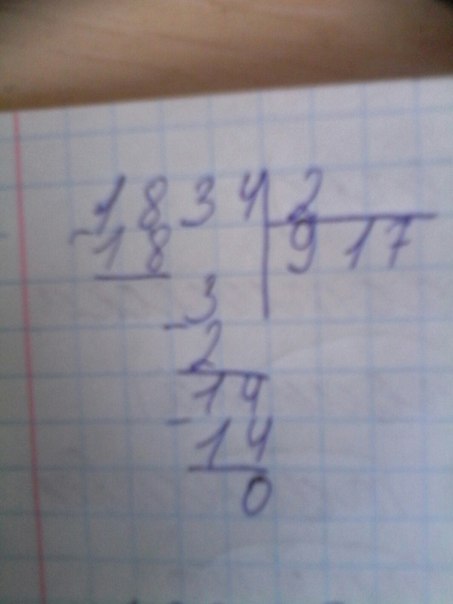 1834 2
-18 917
-3
2
-14
14
0